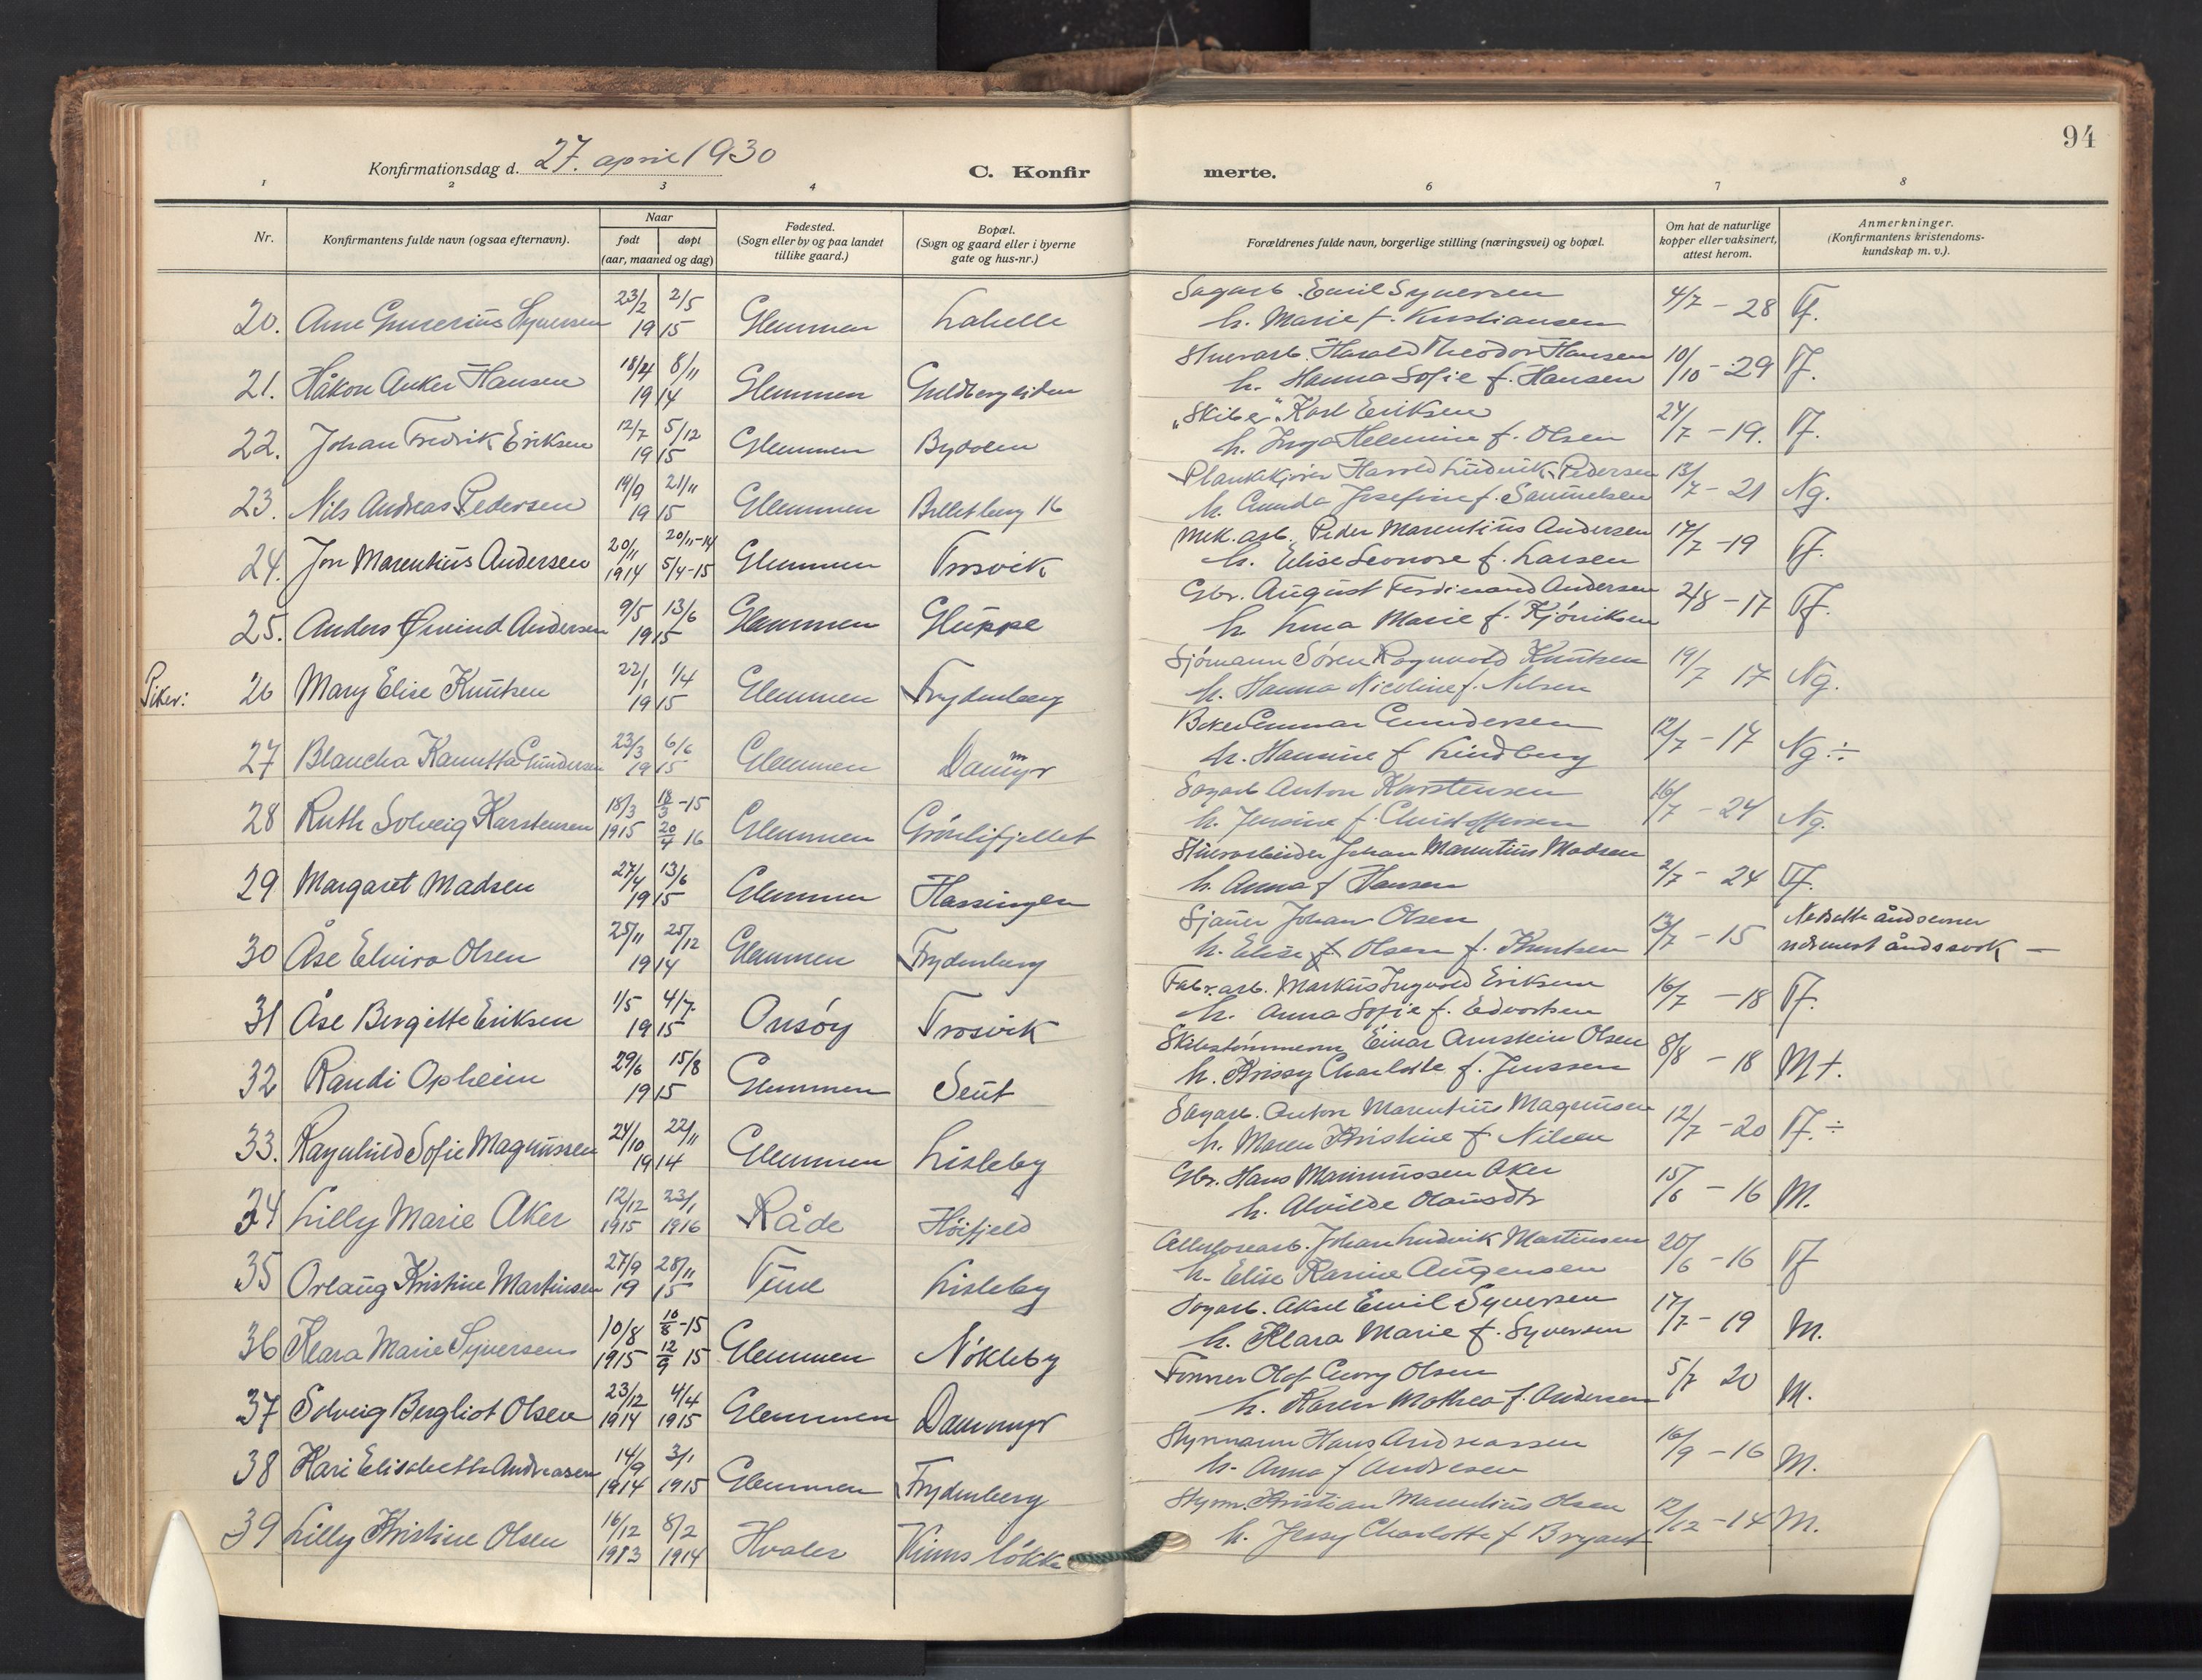 94
Konfirmationsdag d. 27. april 1930
C. Konfir merte.
1 2 3 4 6 7 8
Nr.
Konfirmantens fulde navn (ogsaa efternavn).
Naar
født døpt
(aar, maaned og dag)
Fødested.
(Sogn eller by og paa landet
tillike gaard.)
Bopæl.
(Sogn og gaard eller i byerne
gate og hus-nr.)
Forældrenes fulde navn, borgerlige stilling (næringsvei) og bopæl.
Om hat de naturlige
kopper eller vaksinert,
attest herom.
Anmerkninger.
(Konfirmantens kristendoms-
kundskap m. v.).
Sagarb. Emil Syversen
20. Arne Gunerius Syversen 23/2 2/5 1915 Glemmen Labelle h. Marie f. Kristiansen 4/7 - 28 Tf.
Harald Theodor Hansen
21. Håkon Anker Hansen 18/4 8/11 1914 Glemmen Guldbergsiden h. Hanna Sofie f. Hansen 10/10 - 29 Tf.
Karl Eriksen
22. Johan Fredrik Eriksen 12/7 5/12 1915 Glemmen h. Inga Helmine f. Olsen 24/7 - 19. Tf.
Plankekjører Harald Ludvik Pedersen
23. Nils Andreas Pedersen 19/9 21/11 1915 Glemmen 16 h. Gunda Josefine f. Samuelsen 13/7 - 21 Ng.
Mek. arb. Peder Marentius Andersen
24. Jon Marentius Andersen 20/11 1914 20/11-14 5/4-15 Glemmen Trosvik h. Elise Leonore f. Larsen 17/7 - 19 Tf.
Gbr. August Ferdinand Andersen
25. Anders Øivind Andersen 9/5 13/6 1915 Glemmen Gluppe h. Marie f. 2/8 - 17 Tf.
Sjømann Søren Ragnvald Knutsen
Piker: 26 Mary Elise Knutsen 22/1 1/4 1915 Glemmen Frydenberg h. Hanna Nicoline f. Nilsen 19/7 17 Ng.
Baker Gunnar Gundersen
27 Blancha Kamitta Gundersen 23/3 6/6 1915 Glemmen Dammyr h. Hansine f. Lindberg 12/7 - 17 Ng ÷
Sagarb Anton Karstensen
28 Ruth Solveig Karstensen 18/3 1915 18/3 -15 20/4 16 Glemmen Grønlifjellet h. Jensine f. Christoffersen 16/7 - 24 Ng.
Johan Marentius Madsen
29 Margaret Madsen 27/4 13/6 1915 Glemmen Hassingen h. Anna f Hansen 2/7 - 24 Tf.
Sjauer Johan Olsen
30 Åse Elvira Olsen 25/11 25/12 1914 Glemmen Frydenberg h. Elise f. Olsen f. Knutsen 13/7 - 15 Nedsatte åndsevner
nærmest åndssvak —
Fabr. arb. Markus Ingvald Eriksen
31 Åse Bergitte Eriksen 1/5 4/7. 1915 Onsøy Trosvik h. Anna Sofie f. Edvartsen 16/7 - 18 Tf.
Skibstømmerm. Einar Arnstein Olsen
32 Randi Opheim 29/6 15/8 1915 Glemmen Seut h. Krissy Charlotte f. Jenssen 8/8 - 18 M+.
Sagarb. Anton Marentius Magnussen
33. Ragnhild Sofie Magnussen 24/10 22/11 1914 Glemmen Lisleby h. Maren Kristine f. Nilsen 12/7 - 20 Tf. ÷
Gbr. Hans Aker
34 Lilly Marie Aker 12/12 1915 23/1 1916 Råde Høifjeld h. Alvilde Olausdtr 15/6 - 16 M.
Cellulosearb. Johan Ludvik Martinsen
35 Orlaug Kristine Martinsen 27/9 28/11 1915 Tune Lisleby h. Elise Karine Augensen 20/6 - 16 Tf
Sagarb. Aksel Emil Syversen
36 Klara Marie Syversen 10/8 1915 10/8 -15 12/9 15 Glemmen Nøkleby h. Klara Marie f. Syversen 17/7 - 19 M.
Former Olaf Georg Olsen
37 Solveig Bergliot Olsen 23/12 1914 4/4 1915 Glemmen Dammyr h. Karen Mathea f. Andersen 5/7 20 M.
Styrmann Hans Andreassen
38 Kari Elisabeth Andreasen 14/9 1914 3/1 1915 Glemmen Frydenberg h. Anna f Andresen 16/9 - 16 M.
Styrm. Kristian Marentius Olsen
39 Lilly Kristine Olsen 16/12 1913 8/2 1914 Hvaler løkka h. Jessy Charlotte f Bryant 12/12 - 14 M.